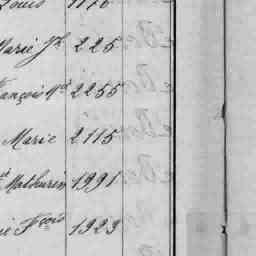 Louis 1176
Marie Jh 225
François Md 2255
Marie 2115
Mathurin 1991
Fçois 1923